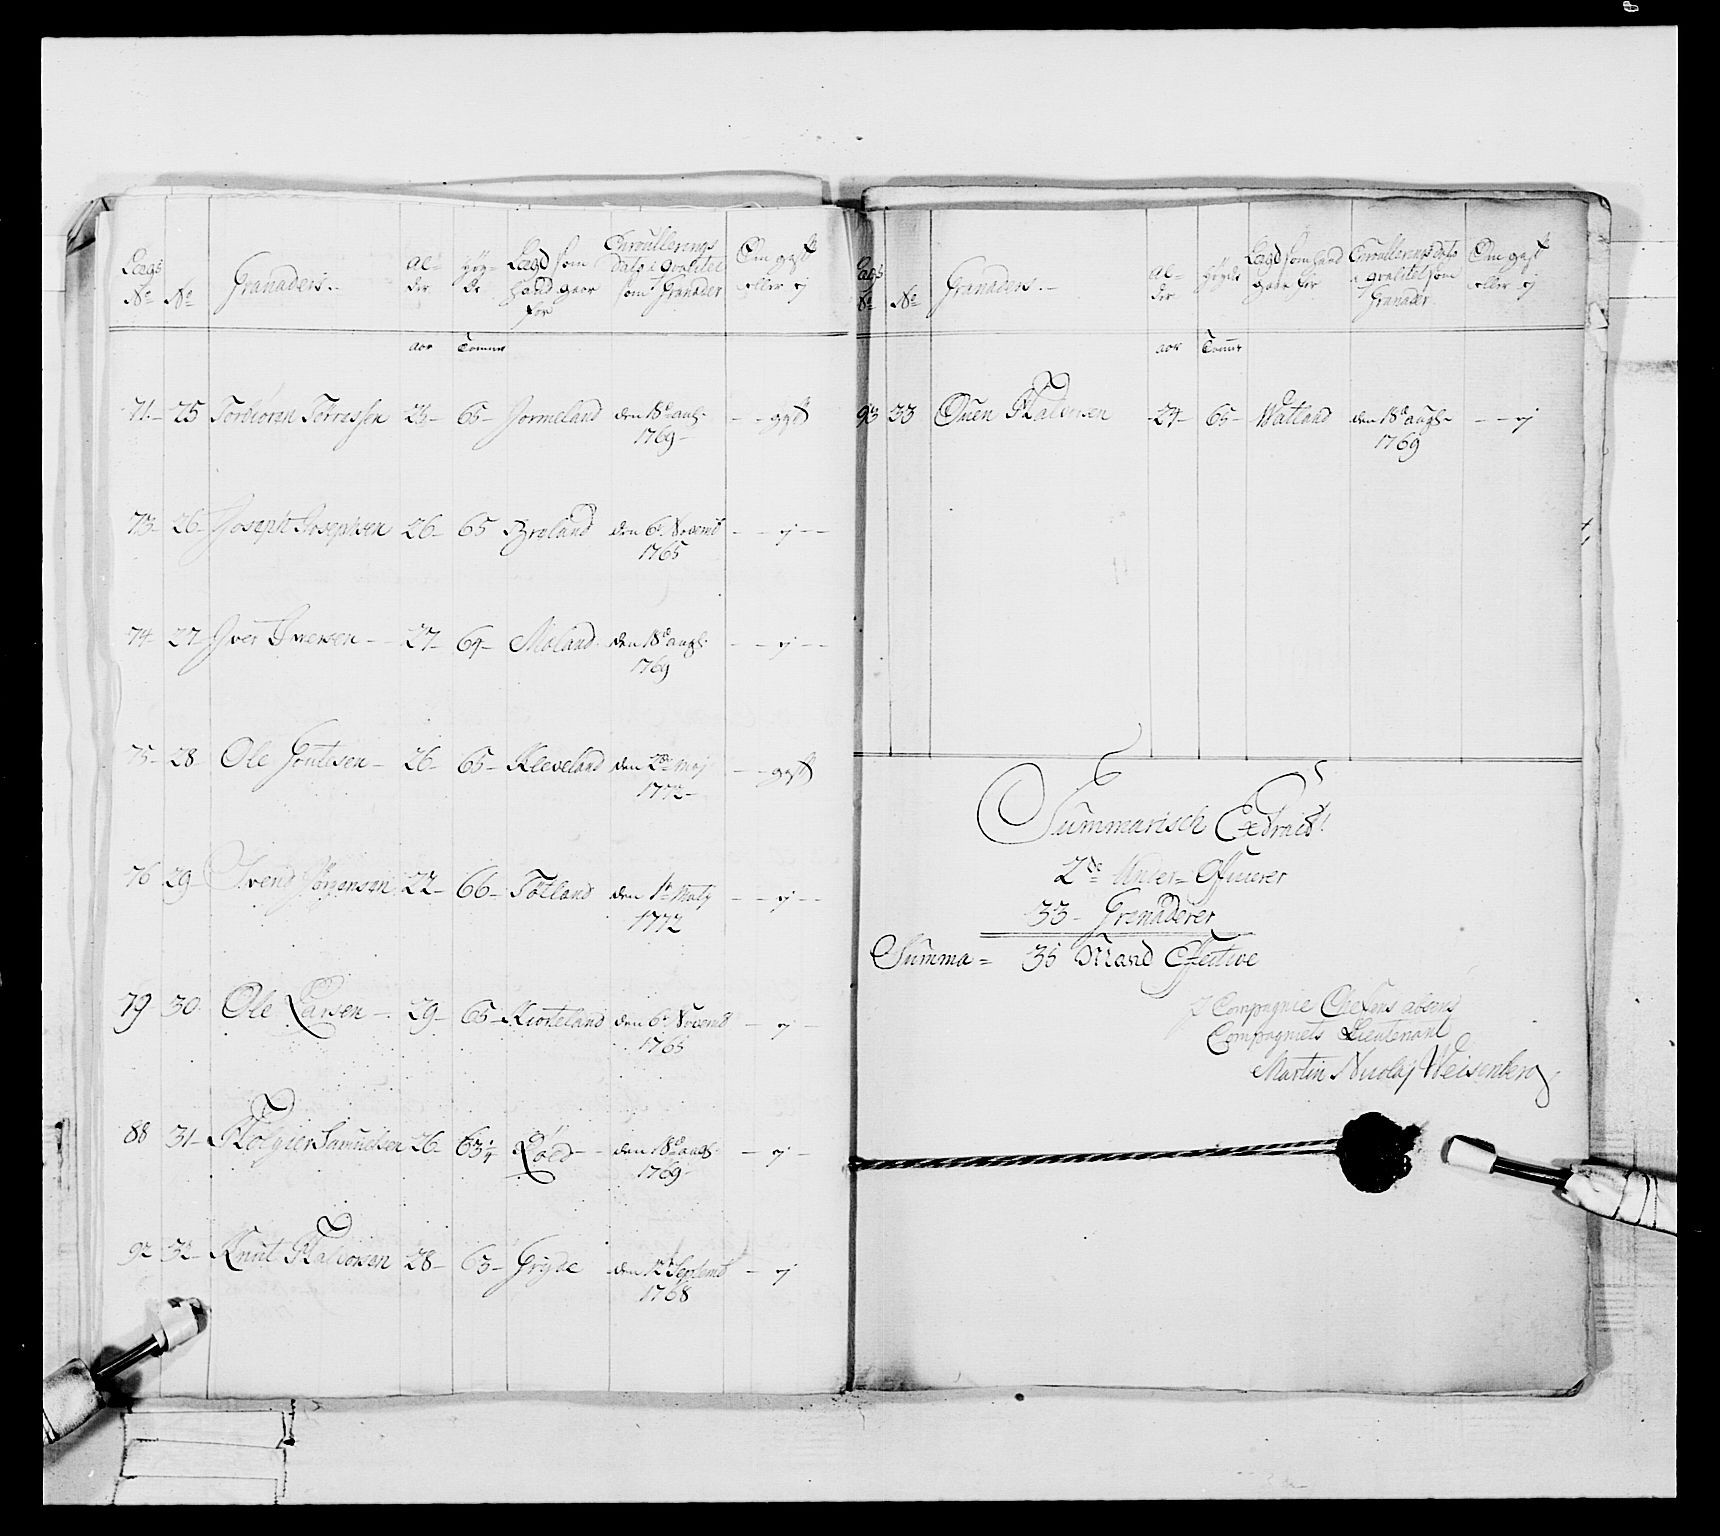 Lægs No No Granaders Al- der Høy- de Lægd som hand gaar for Enroullerings Dato i qvalitet som Granader Om gift eller ej
aar Tommer
71 25 Torbiøren Torressen 23 65 Jormeland den 18de augs: 1769 gift
73 26 Joseph Josephsen 26 65 Broland den 6te Novemb 1765 ej
74 27 Iver Iversen 27 64 Moland den 18de augs: 1769 ej
75 28 Ole Goultsen 26 65 Kleveland den 2de Maj 1772 gift
76 29 Svend Jörgensen 22 66 Totland den 1te Maij 1772 ej
79 30 Ole Larsen 29 65 Kiorteland den 6te Novemb 1765 ej
88 31 Holgier Samuelsen 26 63 1/4 Röed den 18de augs: 1769 ej
92 32 Knut Halvorsen 28 63 Gryde den Septemb 1768 ej
Lægs No No Granaders Al- der Høyde Lægd som hand gaar for Enroullerings Dato i qvalitet som Granader Om gift eller ej
aar Tommer
93 33 Ouen Halvorsen 24 65 Watland den 18de augs: 1769 ej
Summarisch Extract
2de Under-Officerer
33 Grenaderer
Summa = 35 Mand Effective
J Compagnie Chefens
Compagniets Lieutenant
Martin Nicolaj Weisenberg
8